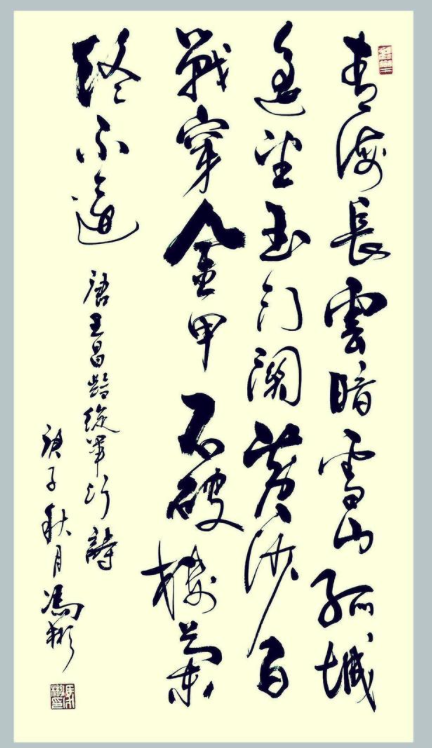 青海長雲暗雪山孤城
遙望玉门關黄沙百
戰穿金甲不破樓蘭
終不還
唐王昌齡從軍行詩
庚子秋月馮彬